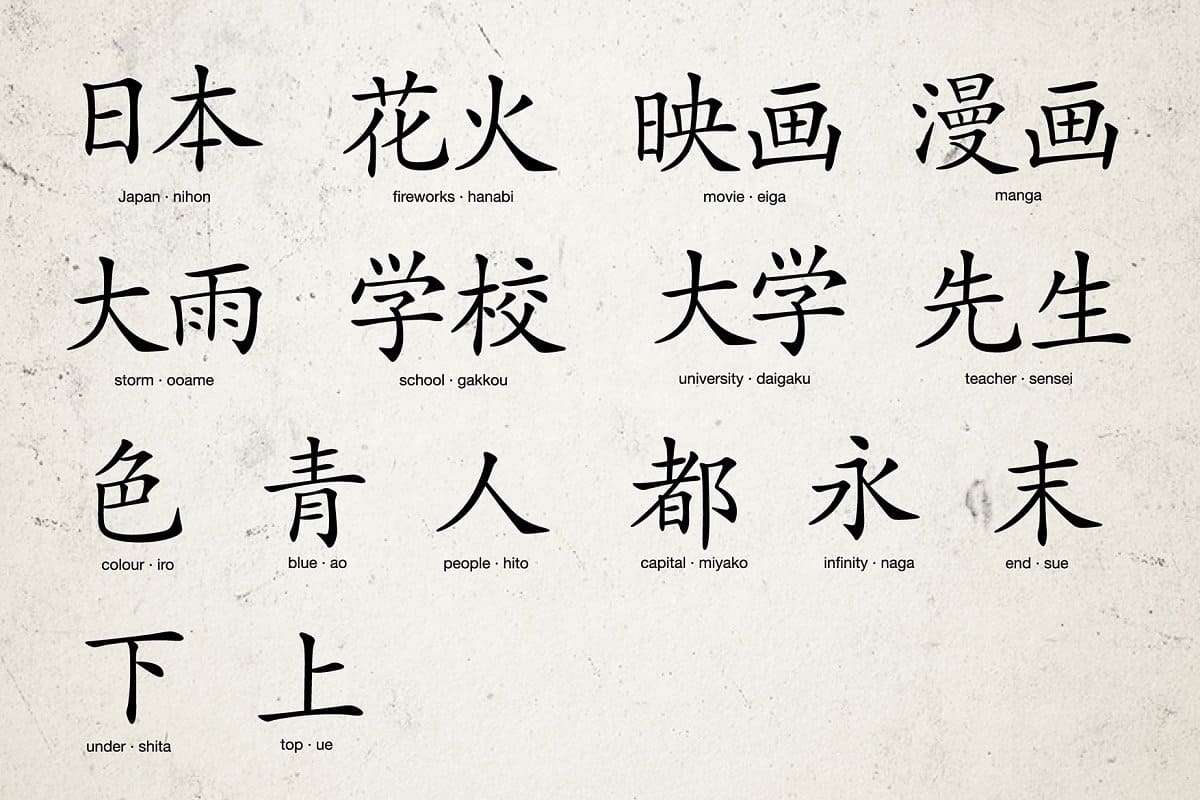 日本 花火 映画 漫画
Japan · nihon fireworks · hanabi movie · eiga manga
大雨 学校 大学 先生
storm · ooame school · gakkou university · daigaku teacher · sensei
色 青 人 都 永 末
colour · iro blue · ao people · hito capital · miyako infinity · naga end · sue
下 上
under · shita top · ue